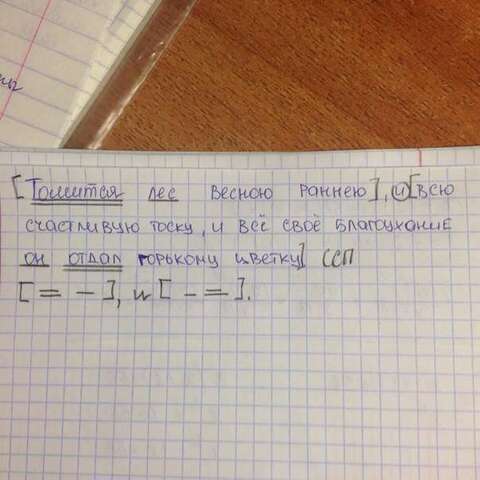 [Томится лес весною раннею], и [всю
счастливую тоску, и всё своё благоухание
он отдал горькому цветку] ССП
[= –], и [– =].